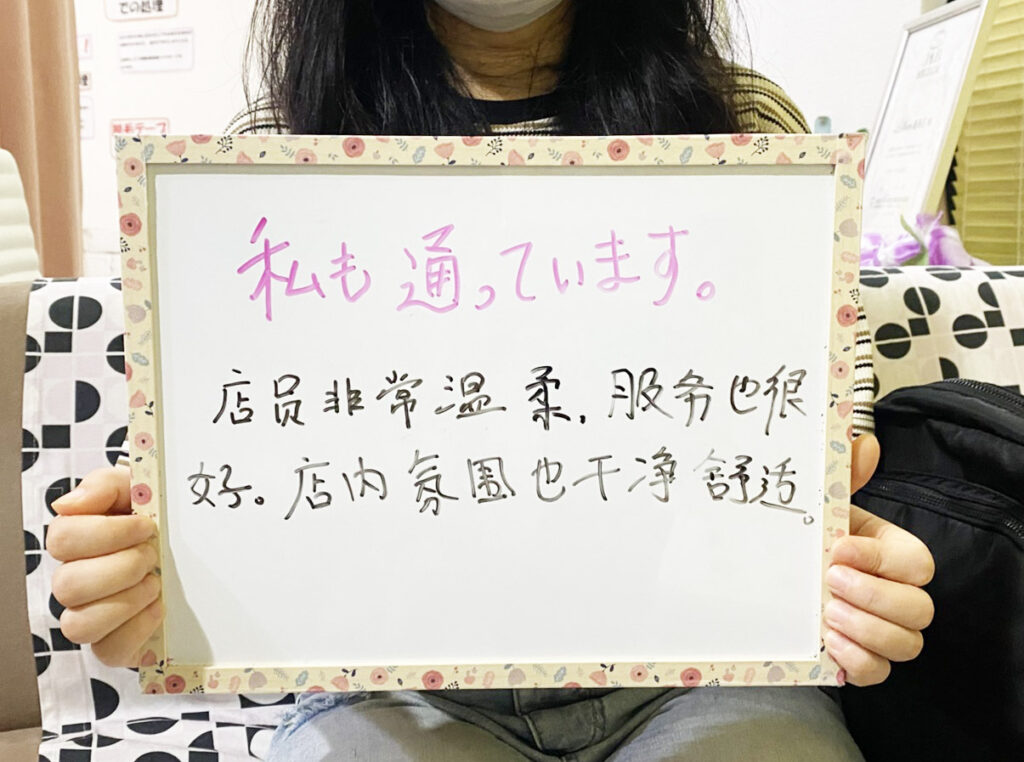 での処理
脱毛テープ
私も通っています。
店员非常温柔，服务也很
好。店内氛围也干净舒适。